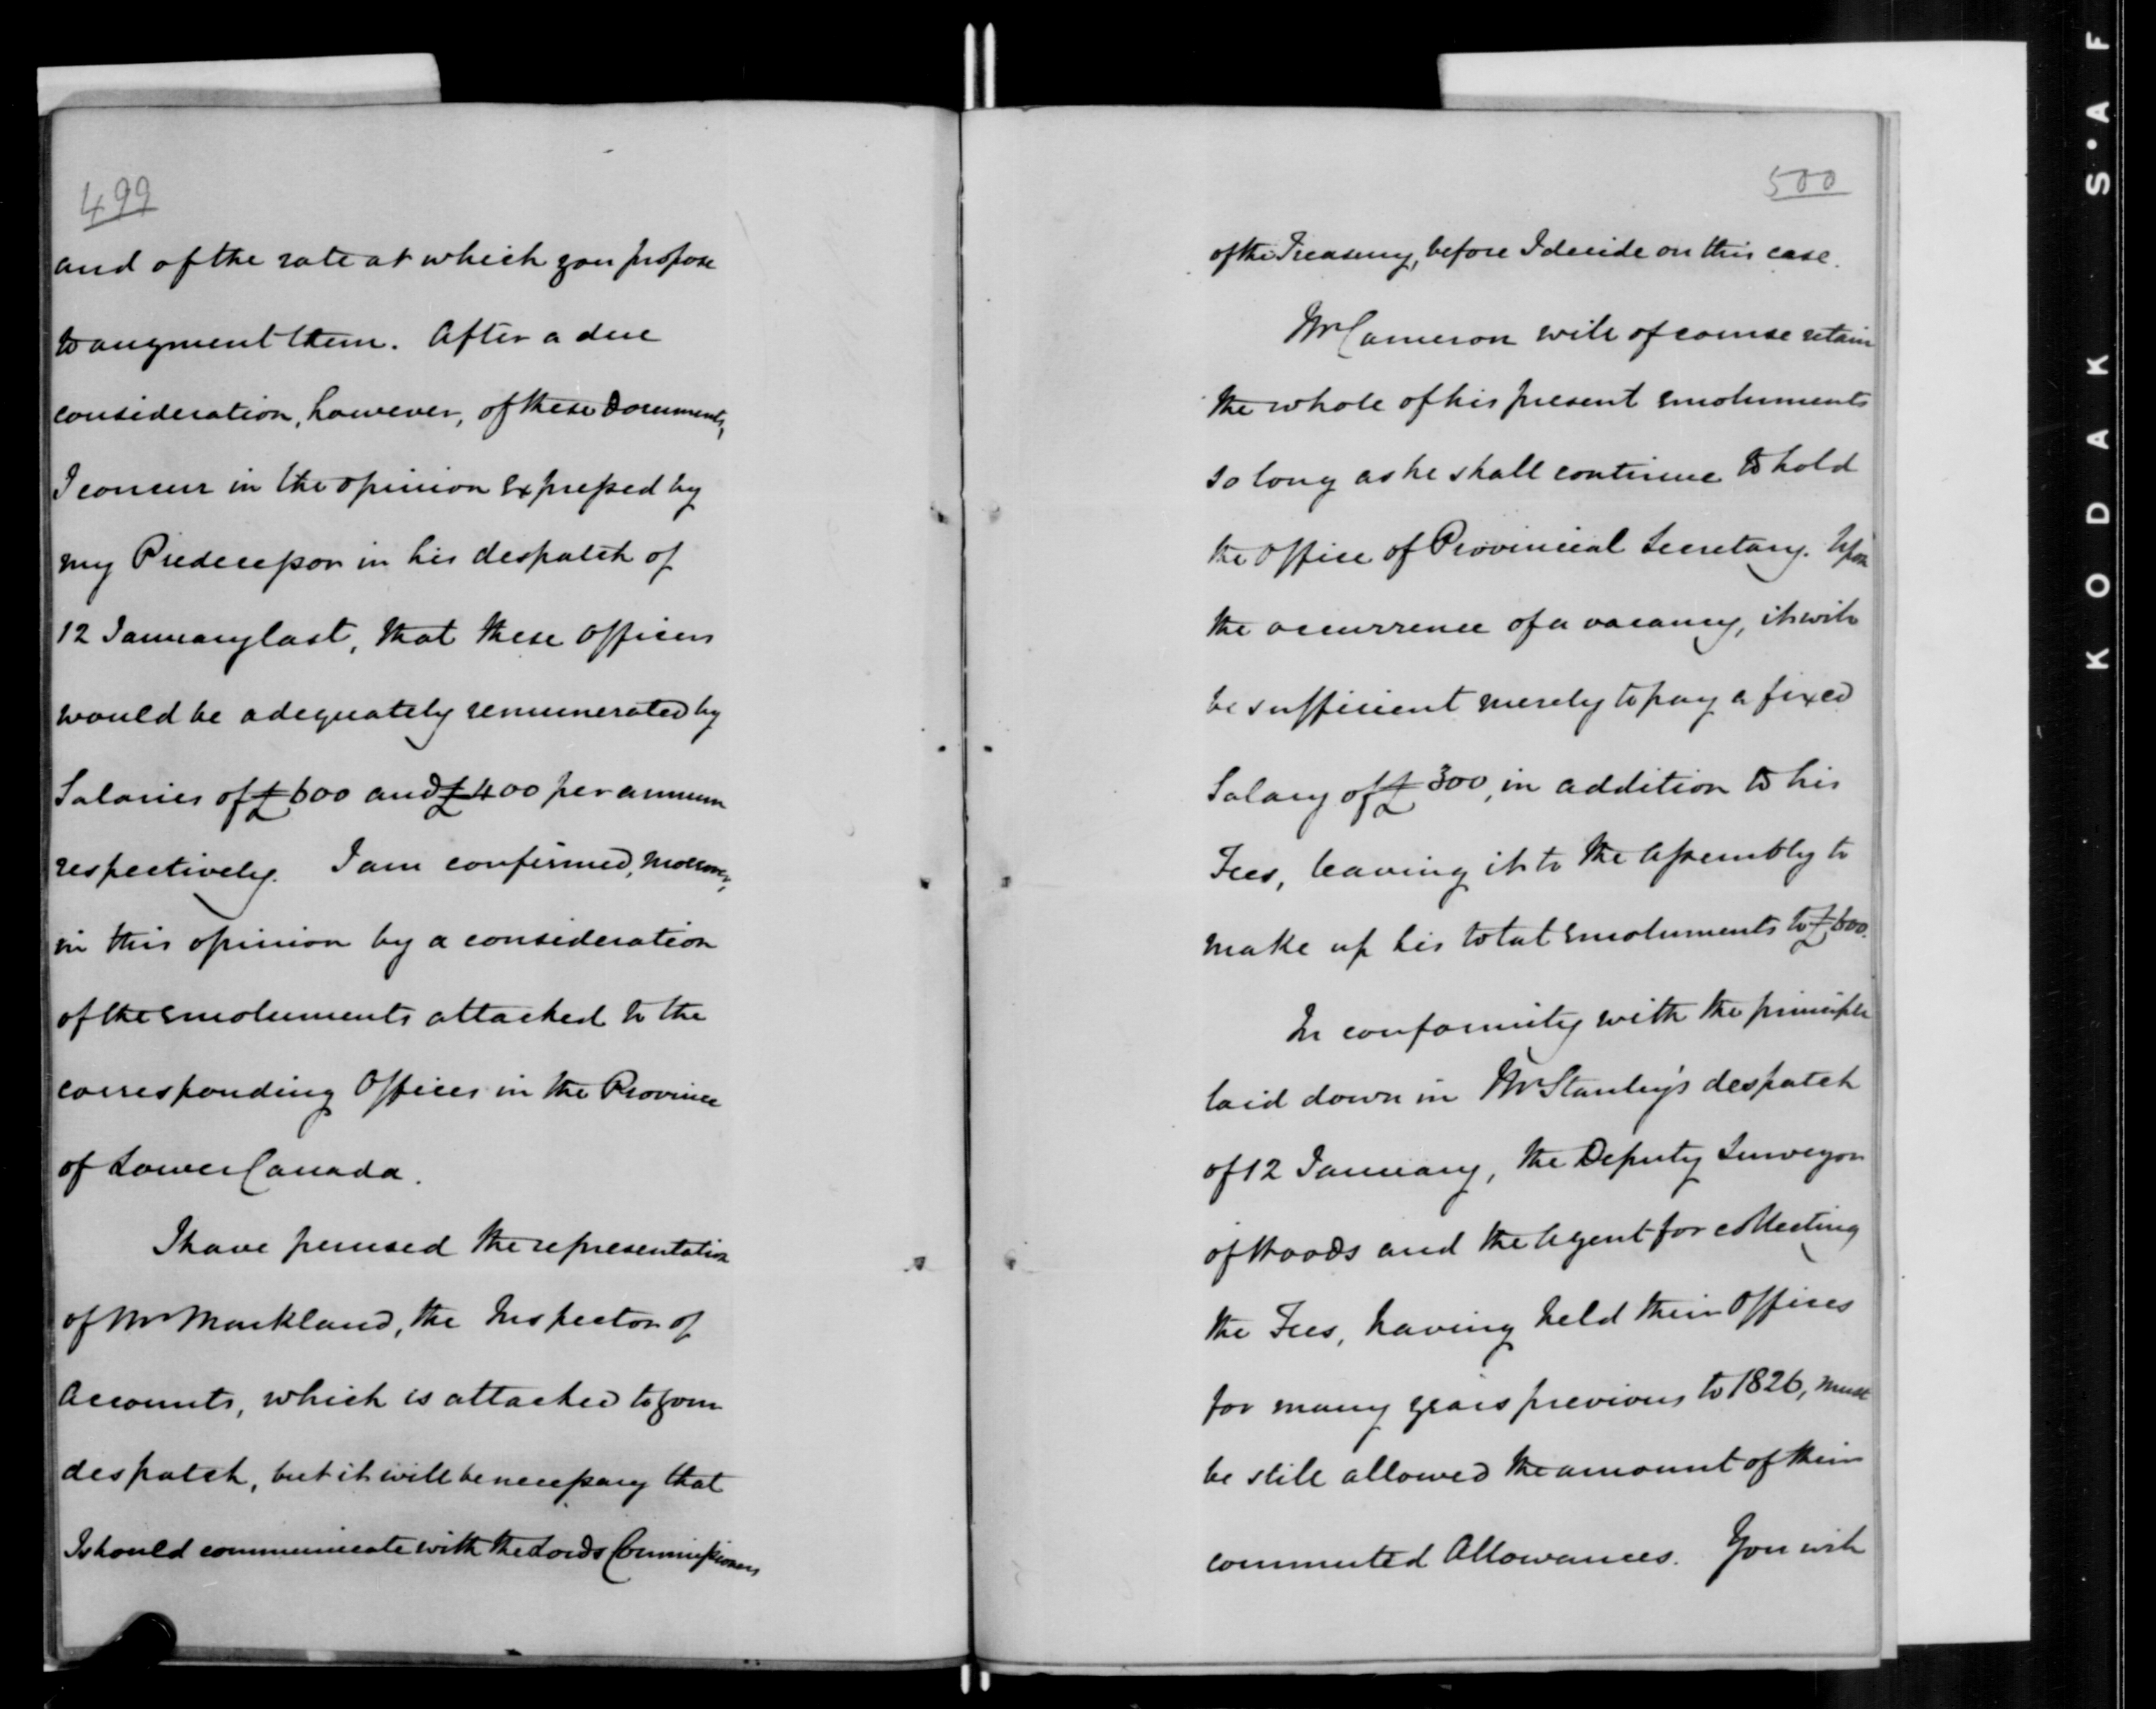 499
and of the rate at which you propose
to augment them. After a due
consideration, however, of these Documents,
I concur in the opinion expressed by
my Predecessor in his despatch of
12 January last, that these Officers
would be adequately remunerated by
Salaries of £600 and £400 per annum
respectively. I am confirmed, moreover,
in this opinion by a consideration
of the emoluments attached to the
corresponding Offices in the Province
of Lower Canada.
I have perused the representation
of Mr Markland, the Inspector of
Accounts, which is attached to your
despatch, but it will be necessary that
I should communicate with the Lords Commissioners
500
of the Treasury, before I decide on this case.
Mr Cameron will of course retain
the whole of his present emoluments
so long as he shall continue to hold
the Office of Provincial Secretary. Upon
the occurrence of a vacancy, it will
be sufficient merely to pay a fixed
Salary of £300, in addition to his
Fees, leaving it to the Assembly to
make up his total emoluments to £600.
In conformity with the principle
laid down in Mr Stanley's despatch
of 12 January, the Deputy Surveyor
of Woods and the Agent for collecting
the Fees, having held their Offices
for many years previous to 1826, must
be still allowed the amount of their
commuted Allowances. You will
KODAK S·AF